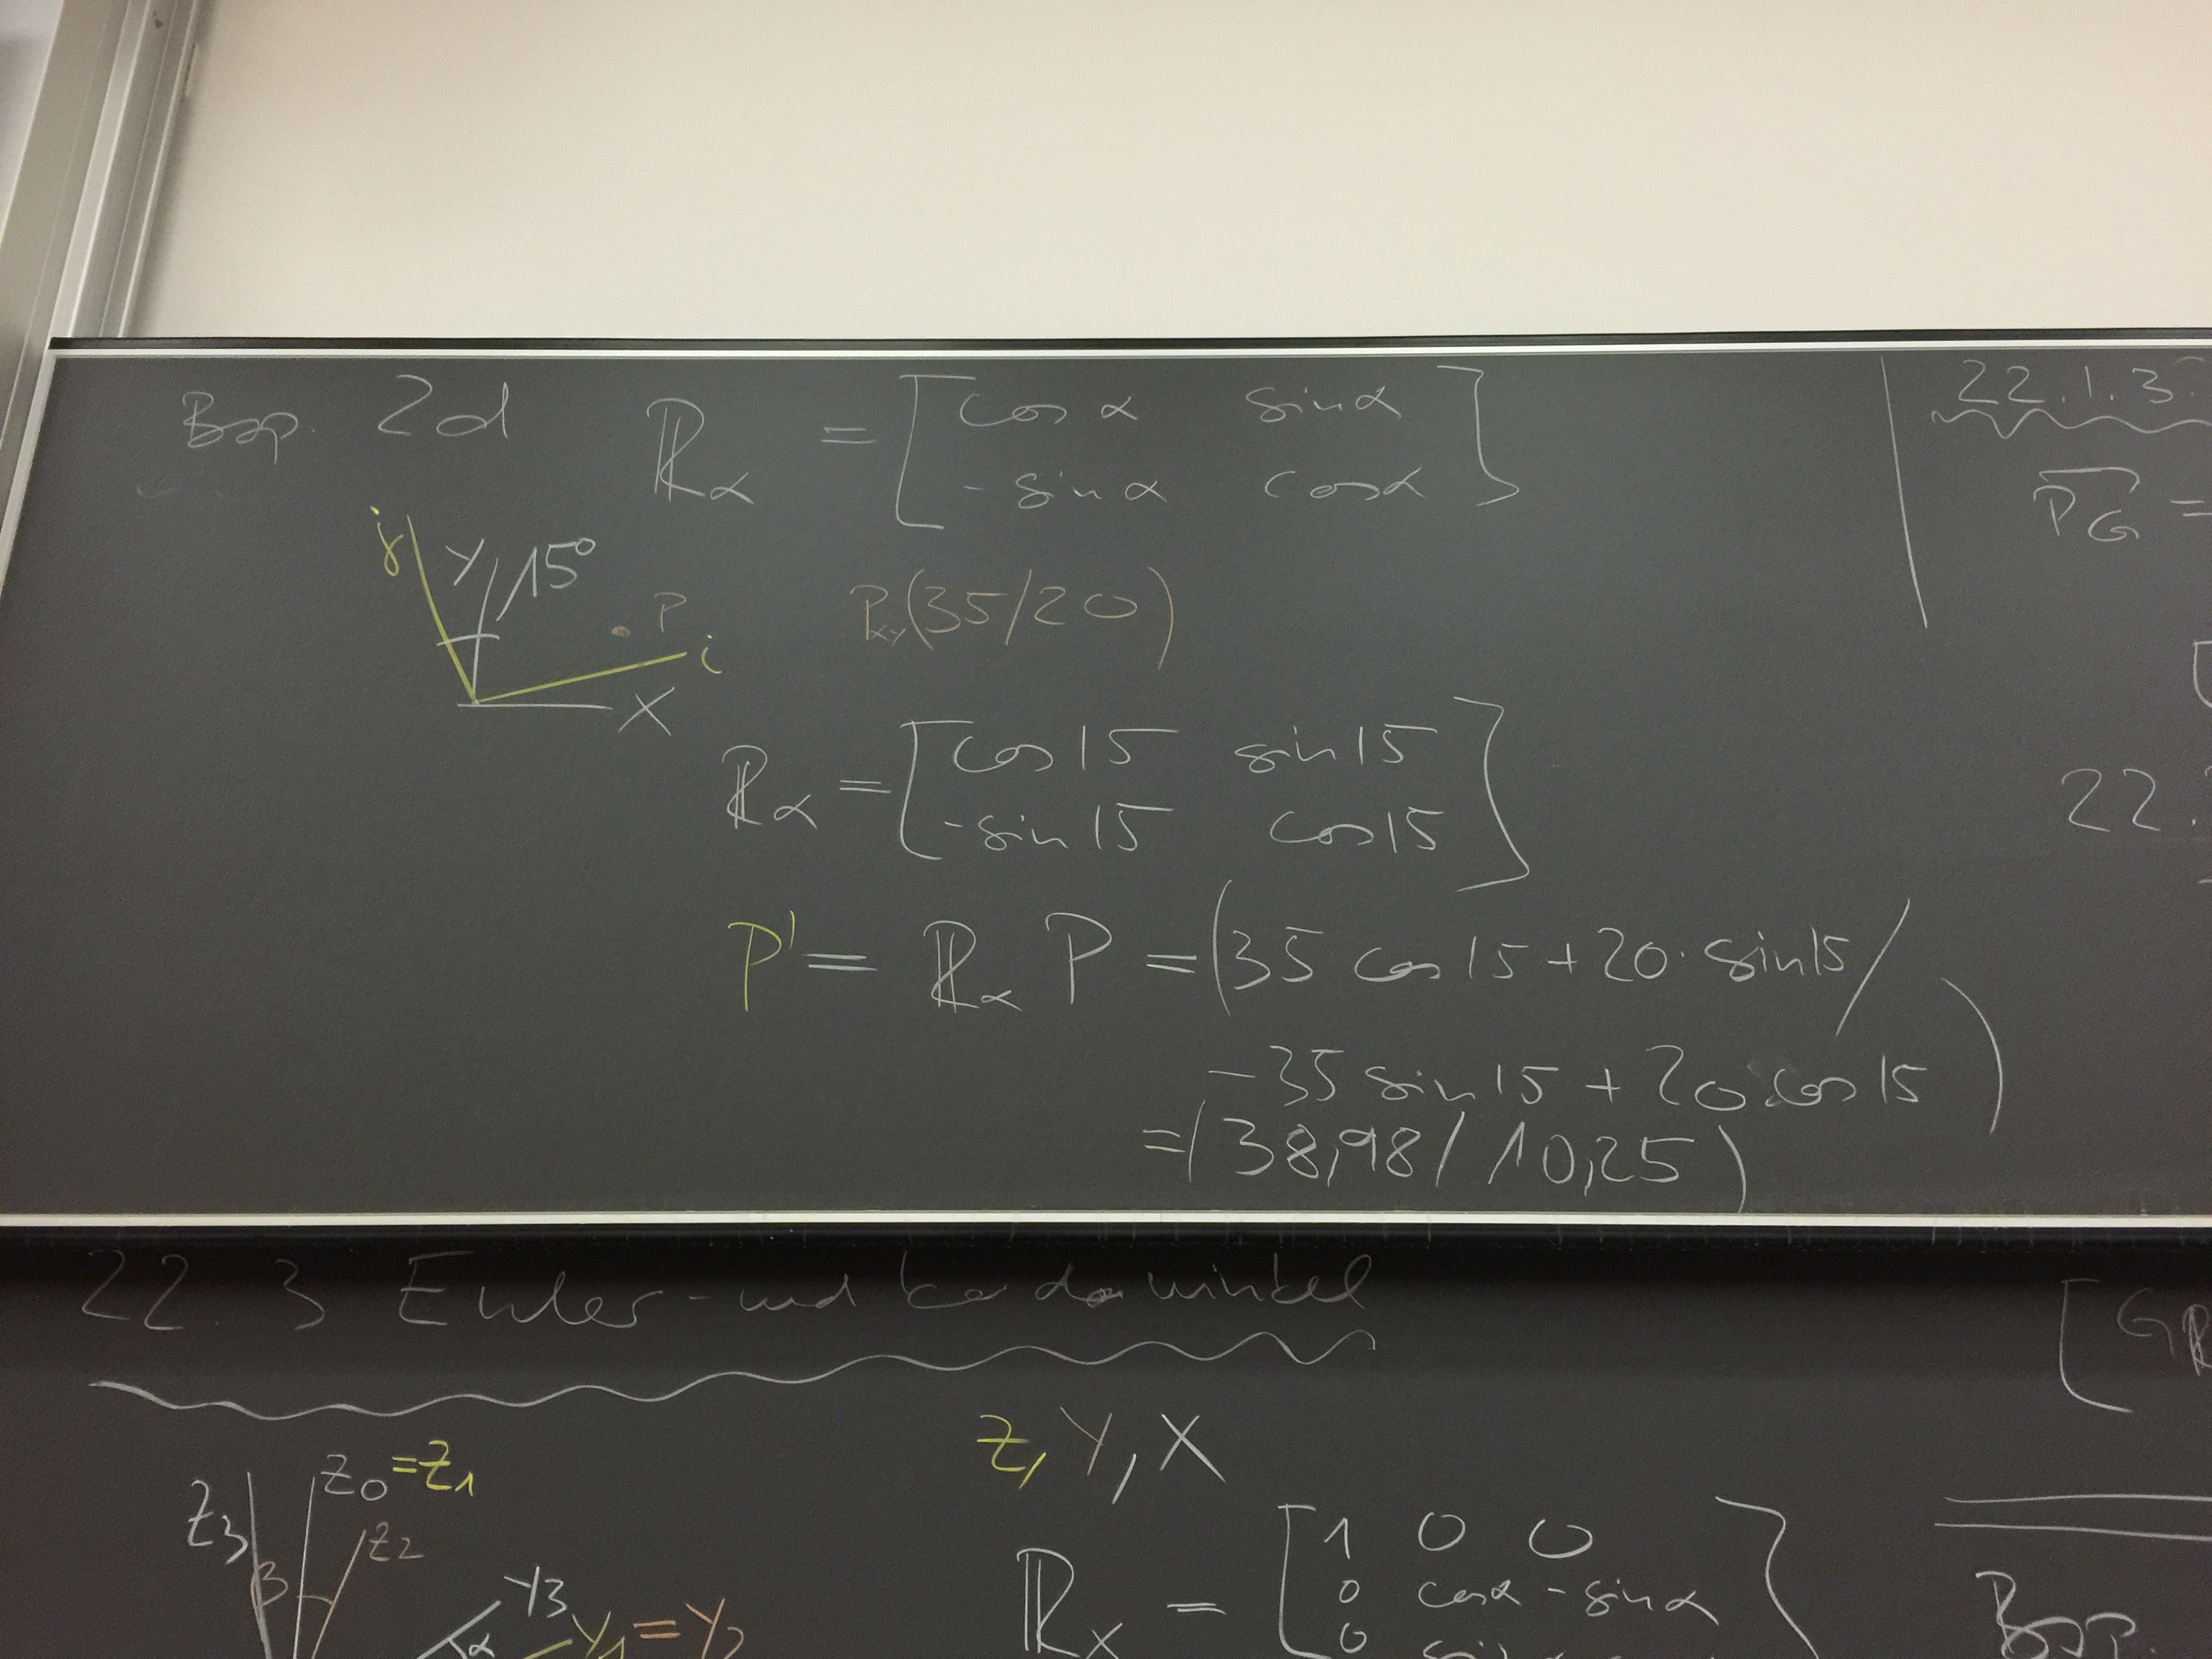 Bsp. 2d ℝα = [cos α sin α
-sin α cos α]
j Y 15° P i X
Pxy(35/20)
ℝα = [cos 15 sin 15
-sin 15 cos 15]
P' = ℝα P = (35 cos 15 + 20 · sin 15 /
-35 sin 15 + 20 cos 15)
= (38,98 / 10,25)
22.1.3.
PG =
22.
22.3 Euler- und Kardanwinkel
Z, Y, X
Z3 Z0 = Z1
β Z2
Y3
α Y1 = Y2
ℝx = [1 0 0
0 cos α - sin α
0
[GR
Bsp.